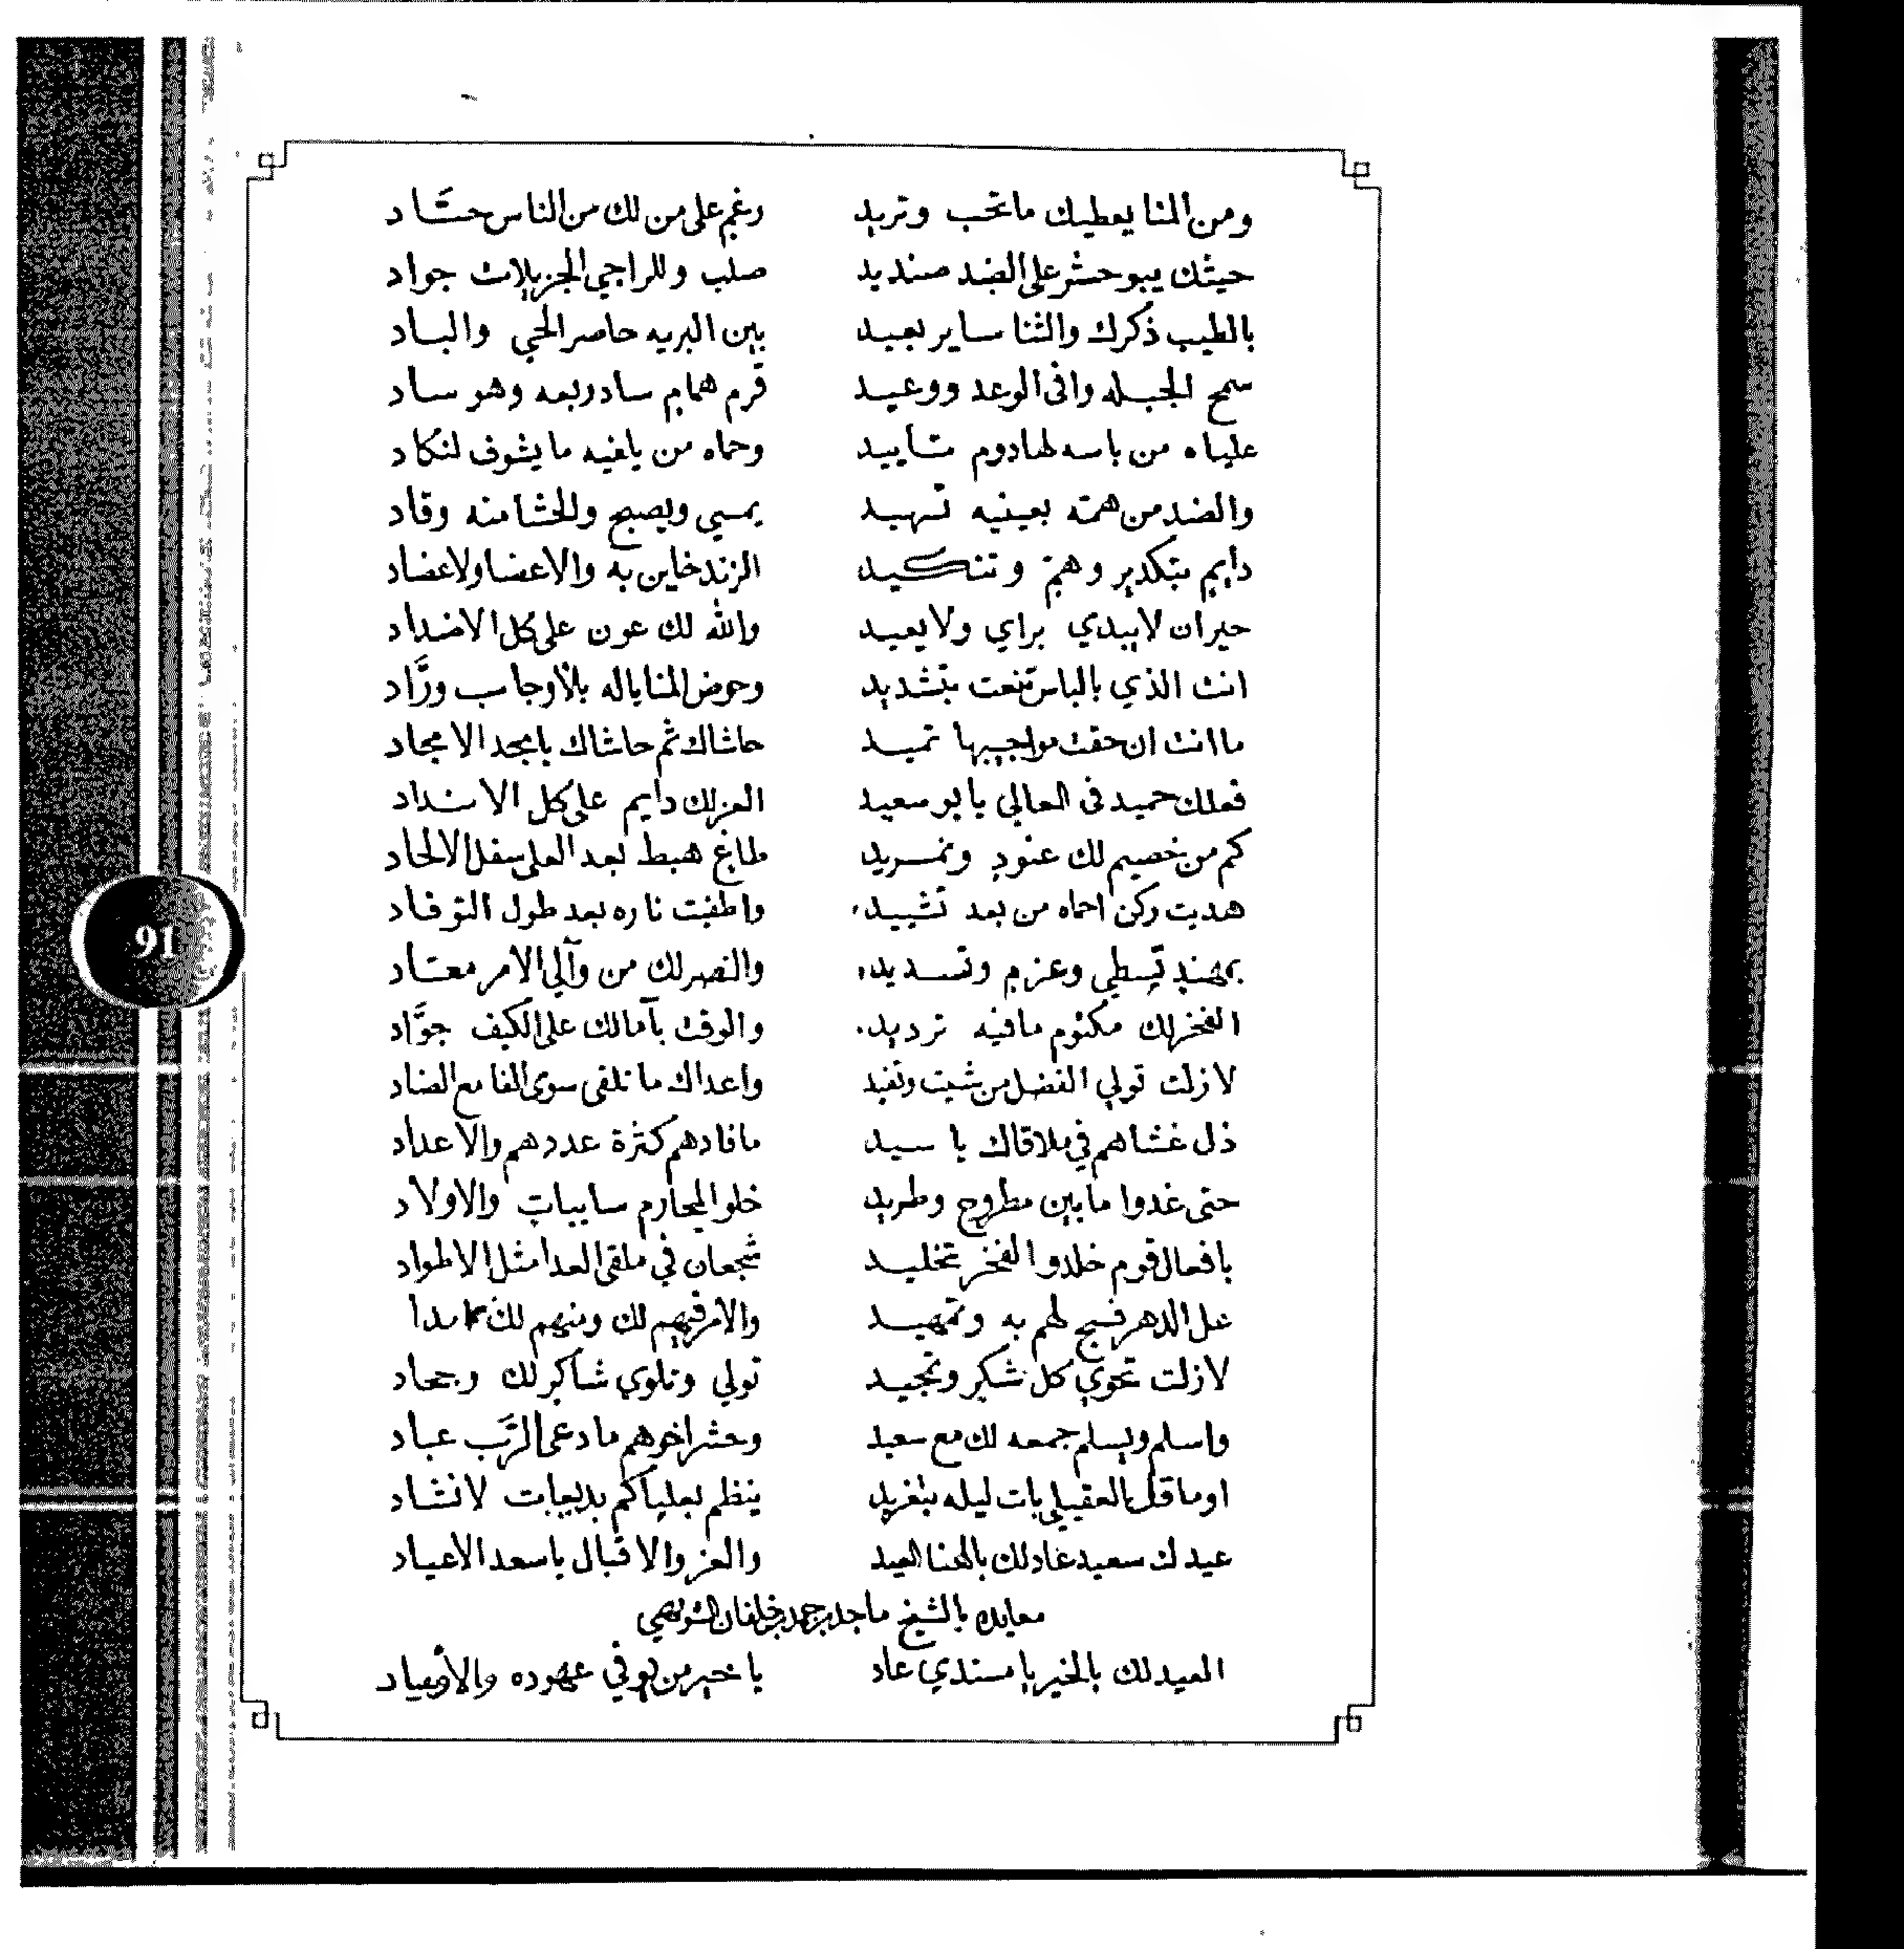 ومن المنا يعطيك ماتحب وتريد رغم على من لك من الناس حسّاد
حيثك يبو حشر على الضد صنديد صلب وللراجي الجزيلات جواد
بالطيب ذكرك والثنا ساير بعيد بين البريه حاصر الحي والباد
سمح الجبله وافي الوعد ووعيد قرم همام ساد ربعه وهو ساد
علياه من باسه لهادوم تأييد وحماه من يلفيه مايشوف لنكاد
والضد من همته بعينيه تسهيد يمسي ويصبح وللحشا منه وقاد
دايم بتكدير وهمّ وتنكيد الزند خاين به والاعضا ولاعضاد
حيران لايبدي براي ولايعيد والله لك عون على كل الاضداد
انت الذي بالباس تنعت بتشديد وحوض المنايا له بالأوجاب ورَّاد
ماانت ان حقت مواجيبها تميد حاشاك ثم حاشاك يامجد الامجاد
فعلك حميد في المعالي يابو سعيد العز لك دايم على كل الاسداد
كم من خصيم لك عنود ونمريد طاغ هبط بعد العلى سفل الالحاد
هديت ركن احماه من بعد تشييد واطفيت ناره بعد طول التوقاد
بمهند تسطي وعزم وتسديد والنصر لك من وآلي الامر معتاد
الفخر لك مكتوم مافيه ترديد والوقت بآمالك على الكيف جوَّاد
لازلت تولي الفضل من شيت وتفيد واعداك ماتلقى سوى الفا مع الضاد
ذل غشاهم في ملاقاك يا سيد مافادهم كثرة عددهم والاعداد
حتى غدوا مابين مطروح وطريد خلو المحارم سايبات والاولاد
يافعال قوم خلدو الفخر تخليد شجعان في ملقى العدا مثل الاطواد
عل الدهر فسح لهم به وتمهيد والامر فيهم لك ومنهم لك
لازلت تحوي كل شكر وتمجيد تولي وتلوي شاكر لك وجحاد
واسلم ويسلم جمعه لك مع سعيد وحشر اخوهم مادعى الرَّب عباد
اوماقل العقيلي بات ليله بتغريد ينظم بعلياكم بديعات لانشاد
عيدك سعيد عاد لك بالهنا العيد والعز والاقبال ياسعد الاعياد
معايده بالشيخ ماجد بن حمد بن خلفان
العيد لك بالخير يا مسندي عاد ياخير من يوفي عهوده
91